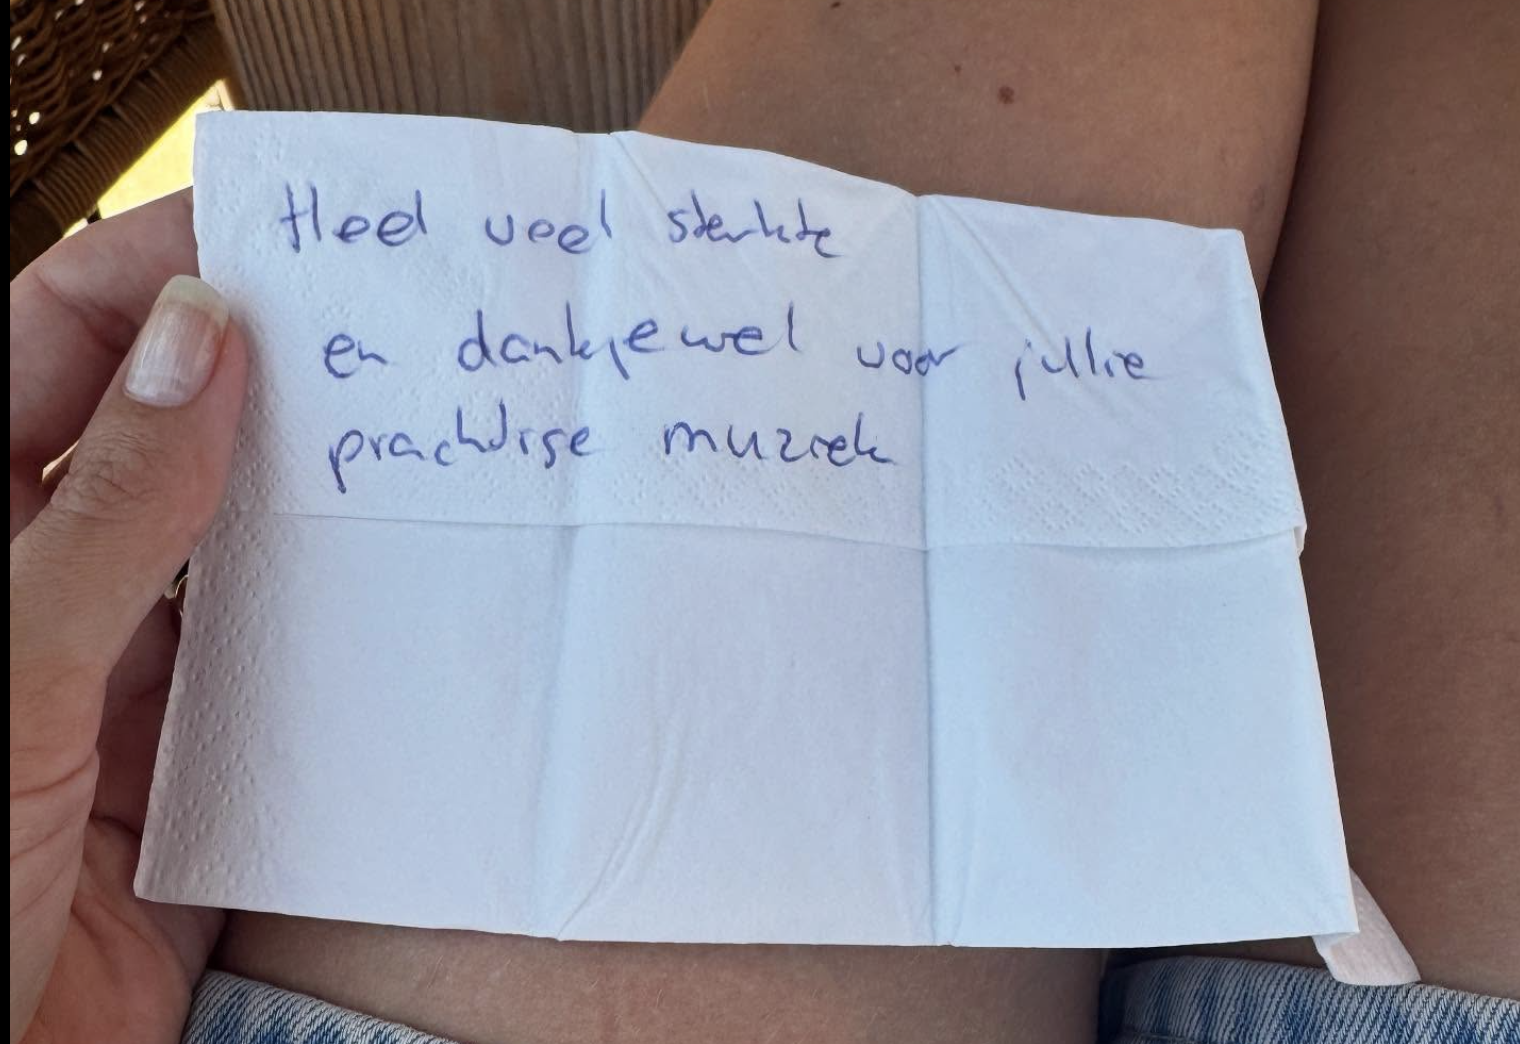 Heel veel sterkte
en dankjewel voor jullie
prachtige muziek